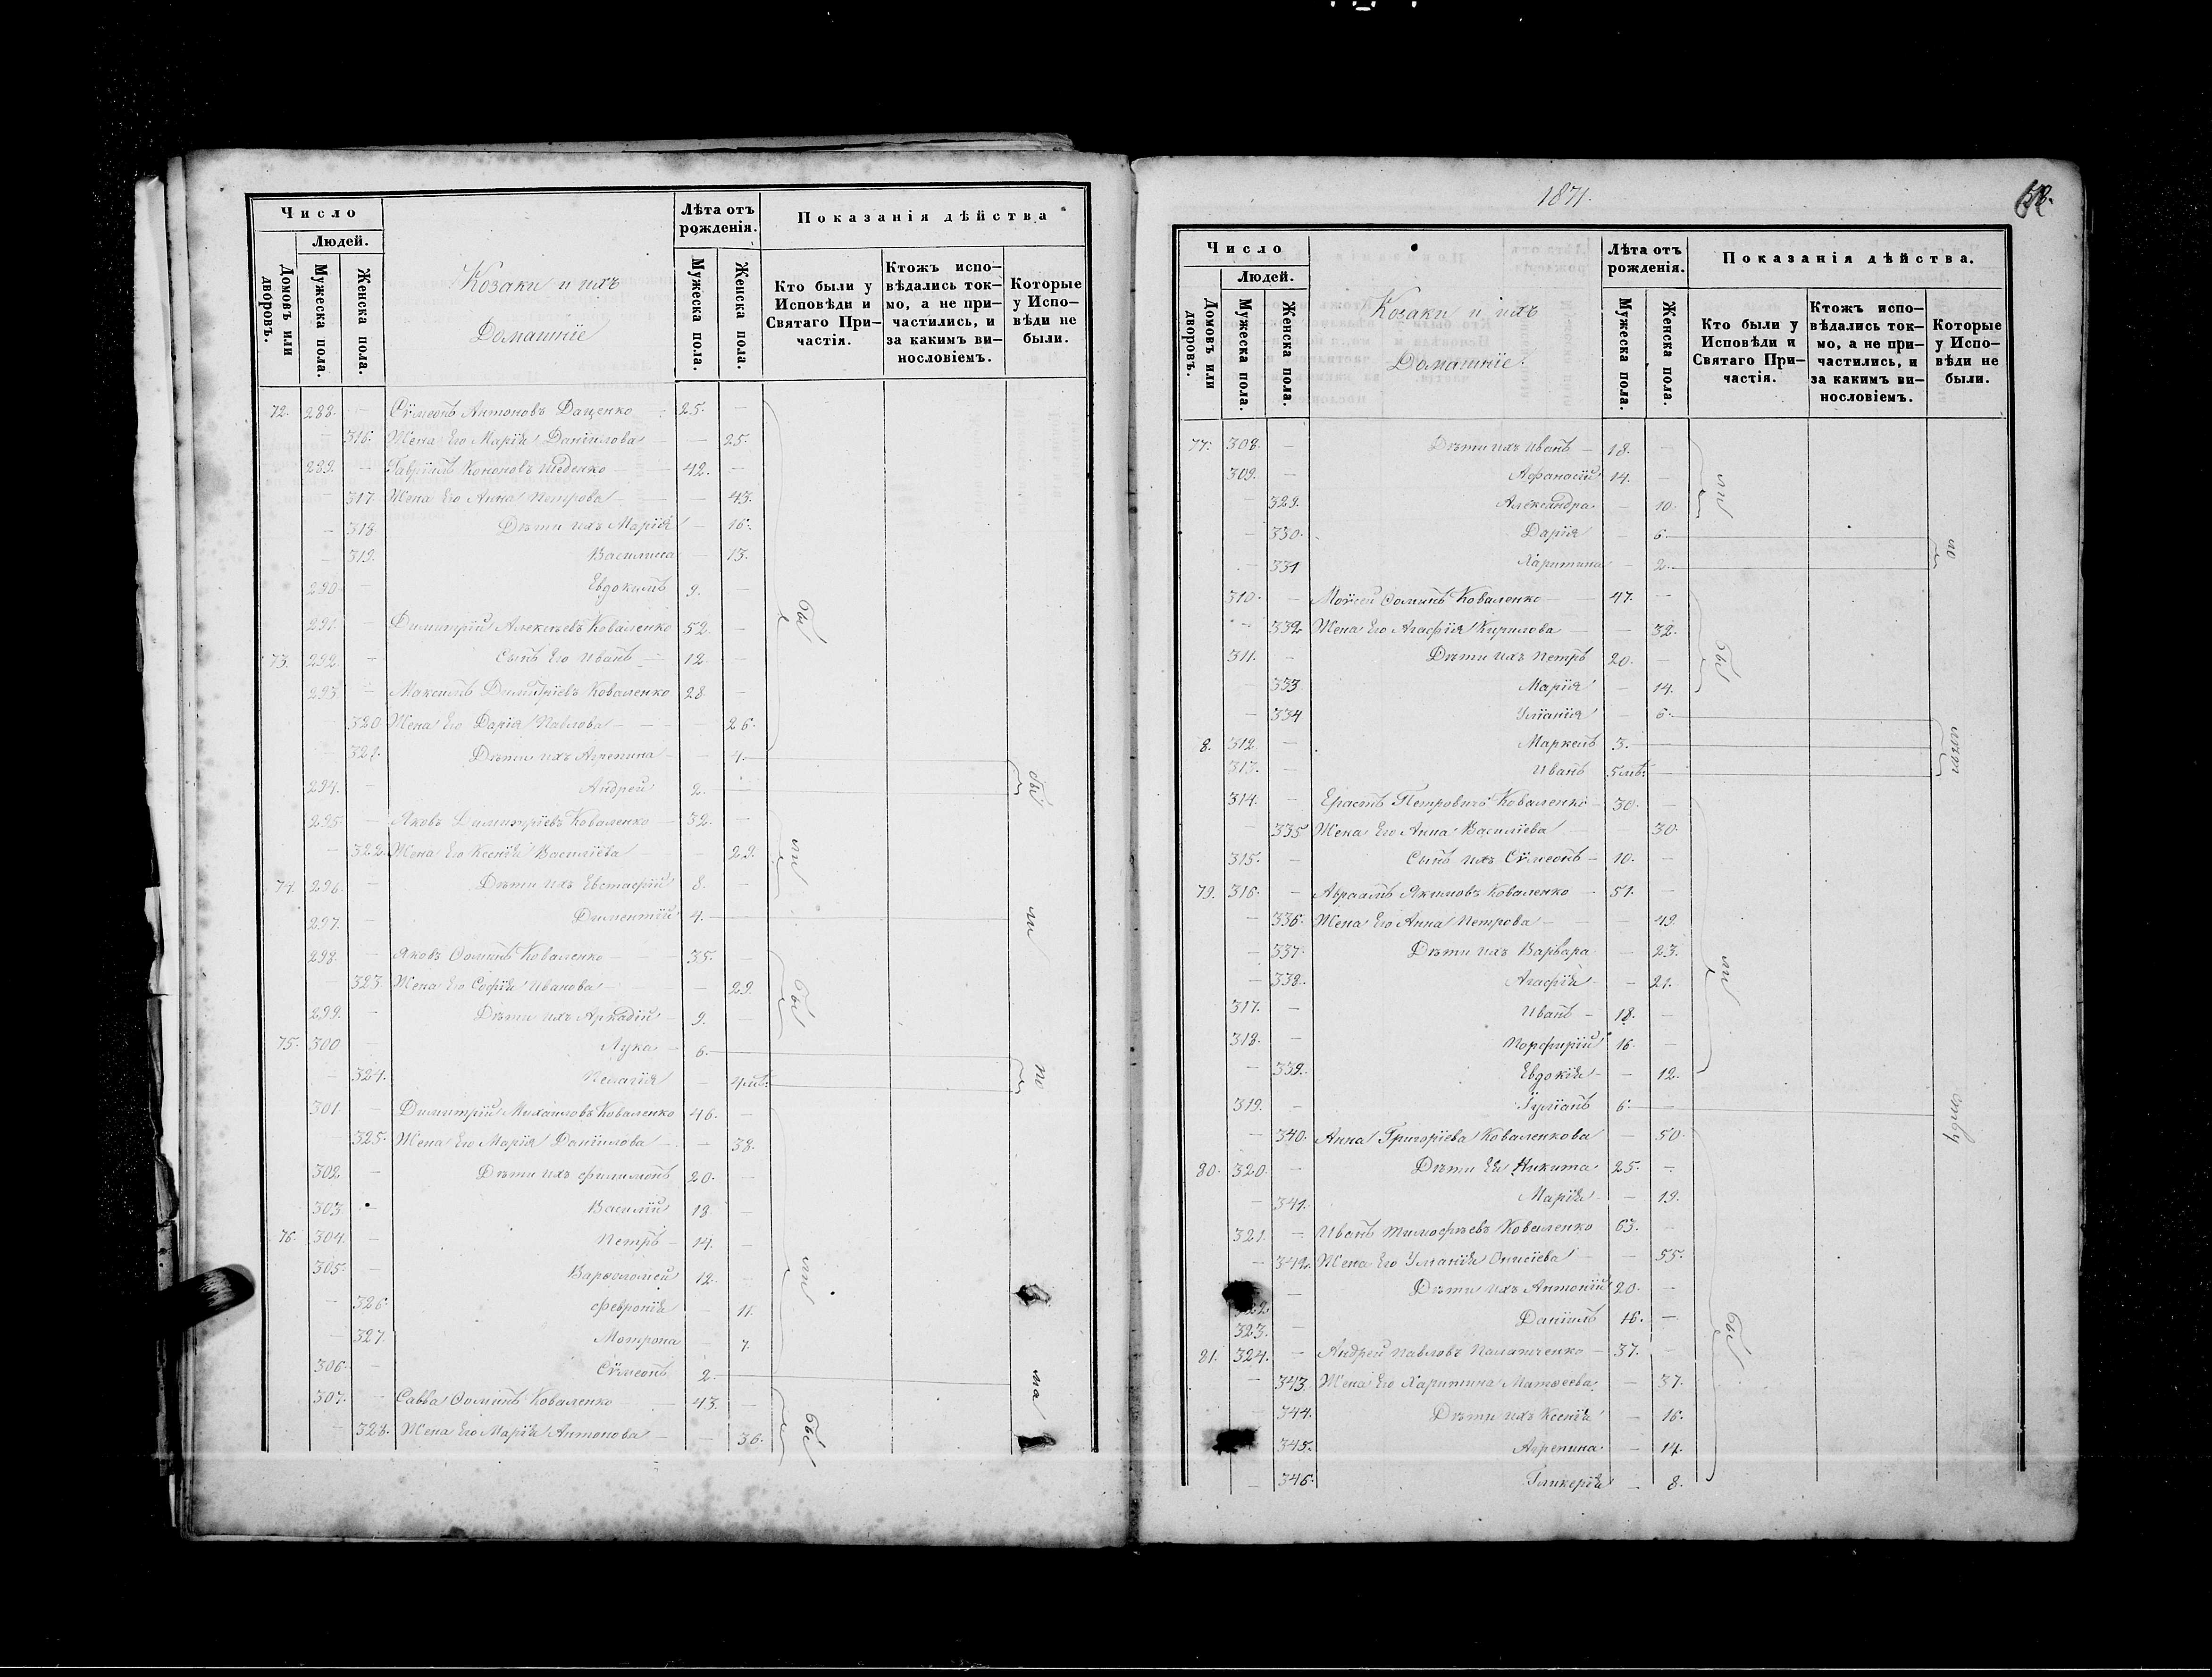 Число
Людей.
Домовъ или дворовъ.
Мужеска пола.
Женска пола.
Козаки и ихъ
Домашніе
Лѣта отъ рожденія.
Мужеска пола.
Женска пола.
Показанія дѣйства
Кто были у Исповѣди и Святаго При-частія.
Ктожъ испо-вѣдались ток-мо, а не при-частились, и за какимъ ви-нословіемъ.
Которые у Испо-вѣди не были.
72. 288. — Сѵмеонъ Антоновъ Даценко 25. —
— 316. Жена Его Марія Даніилова — 25.
289. — Гавріилъ Кононовъ 42. —
— 317. Жена Его Анна Петрова — 43.
— 318. Дѣти ихъ Марія — 16.
— 319. Василиса — 13.
290. — Евдокимъ 9. —
291. — Димитрій Алексѣевъ Коваленко 52. —
73. 292. — Сынъ Его Иванъ 12. —
293. — Максимъ Димитріевъ Коваленко 28. —
320. Жена Его Дарія Павлова — 26.
— 321. Дѣти ихъ Агрепина — 4.
294. — Андрей 2. —
295. — Яковъ Димитріевъ Коваленко 32. —
— 322. Жена Его Ксенія Василіева — 29.
74. 296. — Дѣти ихъ Евстафій 8. —
297. — Диментій 4. —
298. — Яковъ Ѳоминъ Коваленко 35. —
— 323. Жена Его Софія Иванова — 29.
299. — Дѣти ихъ Аркадій 9. —
75. 300 — Лука 6. —
— 324. Пелагія — 4 мѣ.
301. — Димитрій Михаиловъ Коваленко 46. —
325. Жена Его Марія Даніилова — 38.
302 — Дѣти ихъ Филимонъ 20. —
303. — Василій 18. —
76. 304. — Петръ 14. —
305. — Варѳоломей 12. —
— 326. Февронія — 11.
— 327. Мотрона — 7.
306. — Сѵмеонъ 2. —
307. — Савва Ѳоминъ Коваленко 43. —
— 328. Жена Его Марія Антонова — 36.
бы
ли
бы
ли
бы
бы
ли
по
ма
1871.
Число
Людей.
Домовъ или дворовъ.
Мужеска пола.
Женска пола.
Козаки и ихъ
Домашніе.
Лѣта отъ рожденія.
Мужеска пола.
Женска пола.
Показанія дѣйства.
Кто были у Исповѣди и Святаго При-частія.
Ктожъ испо-вѣдались ток-мо, а не при-частились, и за какимъ ви-нословіемъ.
Которые у Испо-вѣди не были.
77. 308. — Дѣти ихъ Иванъ 18. —
309. — Афанасій 14. —
— 329. Александра — 10.
— 330. Дарія — 6.
— 331 Харитина — 2.
310. — Моѵсей Ѳоминъ Коваленко 47. —
— 332 Жена Его Агафія Кирилова — 32.
311. — Дѣти ихъ Петръ 20. —
— 333 Марія — 14.
— 334 Уліанія — 6.
8. 312. — Маркелъ 3. —
313. — Иванъ 5 мѣ. —
314. — Ерастъ Петровичъ Коваленко 30. —
— 335 Жена Его Анна Василіева — 30.
315. — Сынъ ихъ Сѵмеонъ 10. —
79. 316. — Авраамъ Якимовъ Коваленко 51. —
— 336. Жена Его Анна Петрова — 49.
— 337. Дѣти ихъ Варвара — 23.
— 338. Агафія — 21.
317. — Иванъ 18. —
318. — Порфирій 16. —
— 339. Евдокія — 12.
319. — Іуліанъ 6. —
— 340. Анна Григоріева Коваленкова — 50.
80. 320. — Дѣти Ея Никита 25. —
— 341. Марія — 19.
321. — Иванъ Тимофѣевъ Коваленко 63. —
— 342. Жена Его Уліанія — 55.
322. — Дѣти ихъ Антоній 20. —
323. — Даніилъ 16. —
81. 324. — Андрей Павловъ 37. —
— 343. Жена Его Харитина Матѳеева — 37.
— 344. Дѣти ихъ Ксенія — 16.
— 345. Агрепина — 14.
— 346. Гликерія — 8.
ли
бы
ли
бы
по
лѣт
ству